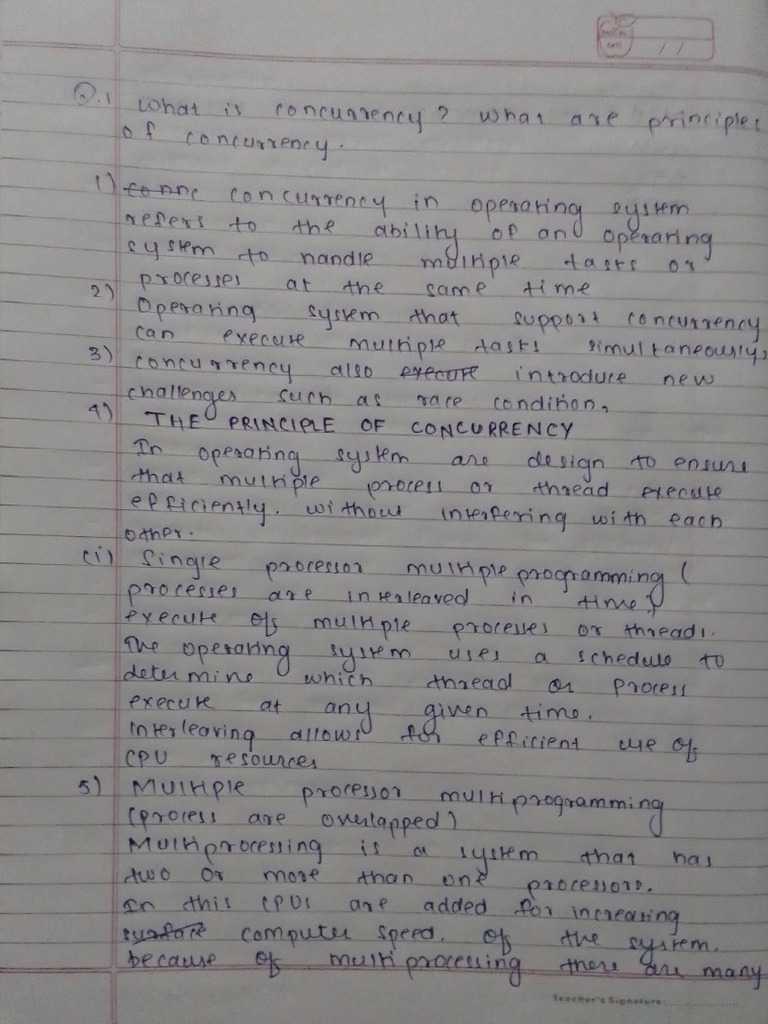 Q.1 What is concurrency? What are principles
of concurrency.
1) conc concurrency in operating system
refers to the ability of an operating
system to handle multiple tasks or
processes at the same time
2) Operating system that support concurrency
can execute multiple tasks simultaneously,
3) concurrency also execute introduce new
challenges such as race condition,
4) THE PRINCIPLE OF CONCURRENCY
In operating system are design to ensure
that multiple process or thread execute
efficiently. without interfering with each
other.
(i) Single processor multiple programming (
processes are interleaved in time)
execute of multiple processes or threads.
The operating system uses a schedule to
determine which thread or process
execute at any given time.
Interleaving allows for efficient use of
CPU resources
5) Multiple processor multiprogramming
(process are overlapped)
Multiprocessing is a system that has
two or more than one processors.
In this CPUs are added for increasing
surface computer speed. of the system.
because of multiprocessing there are many
Teacher's Signature